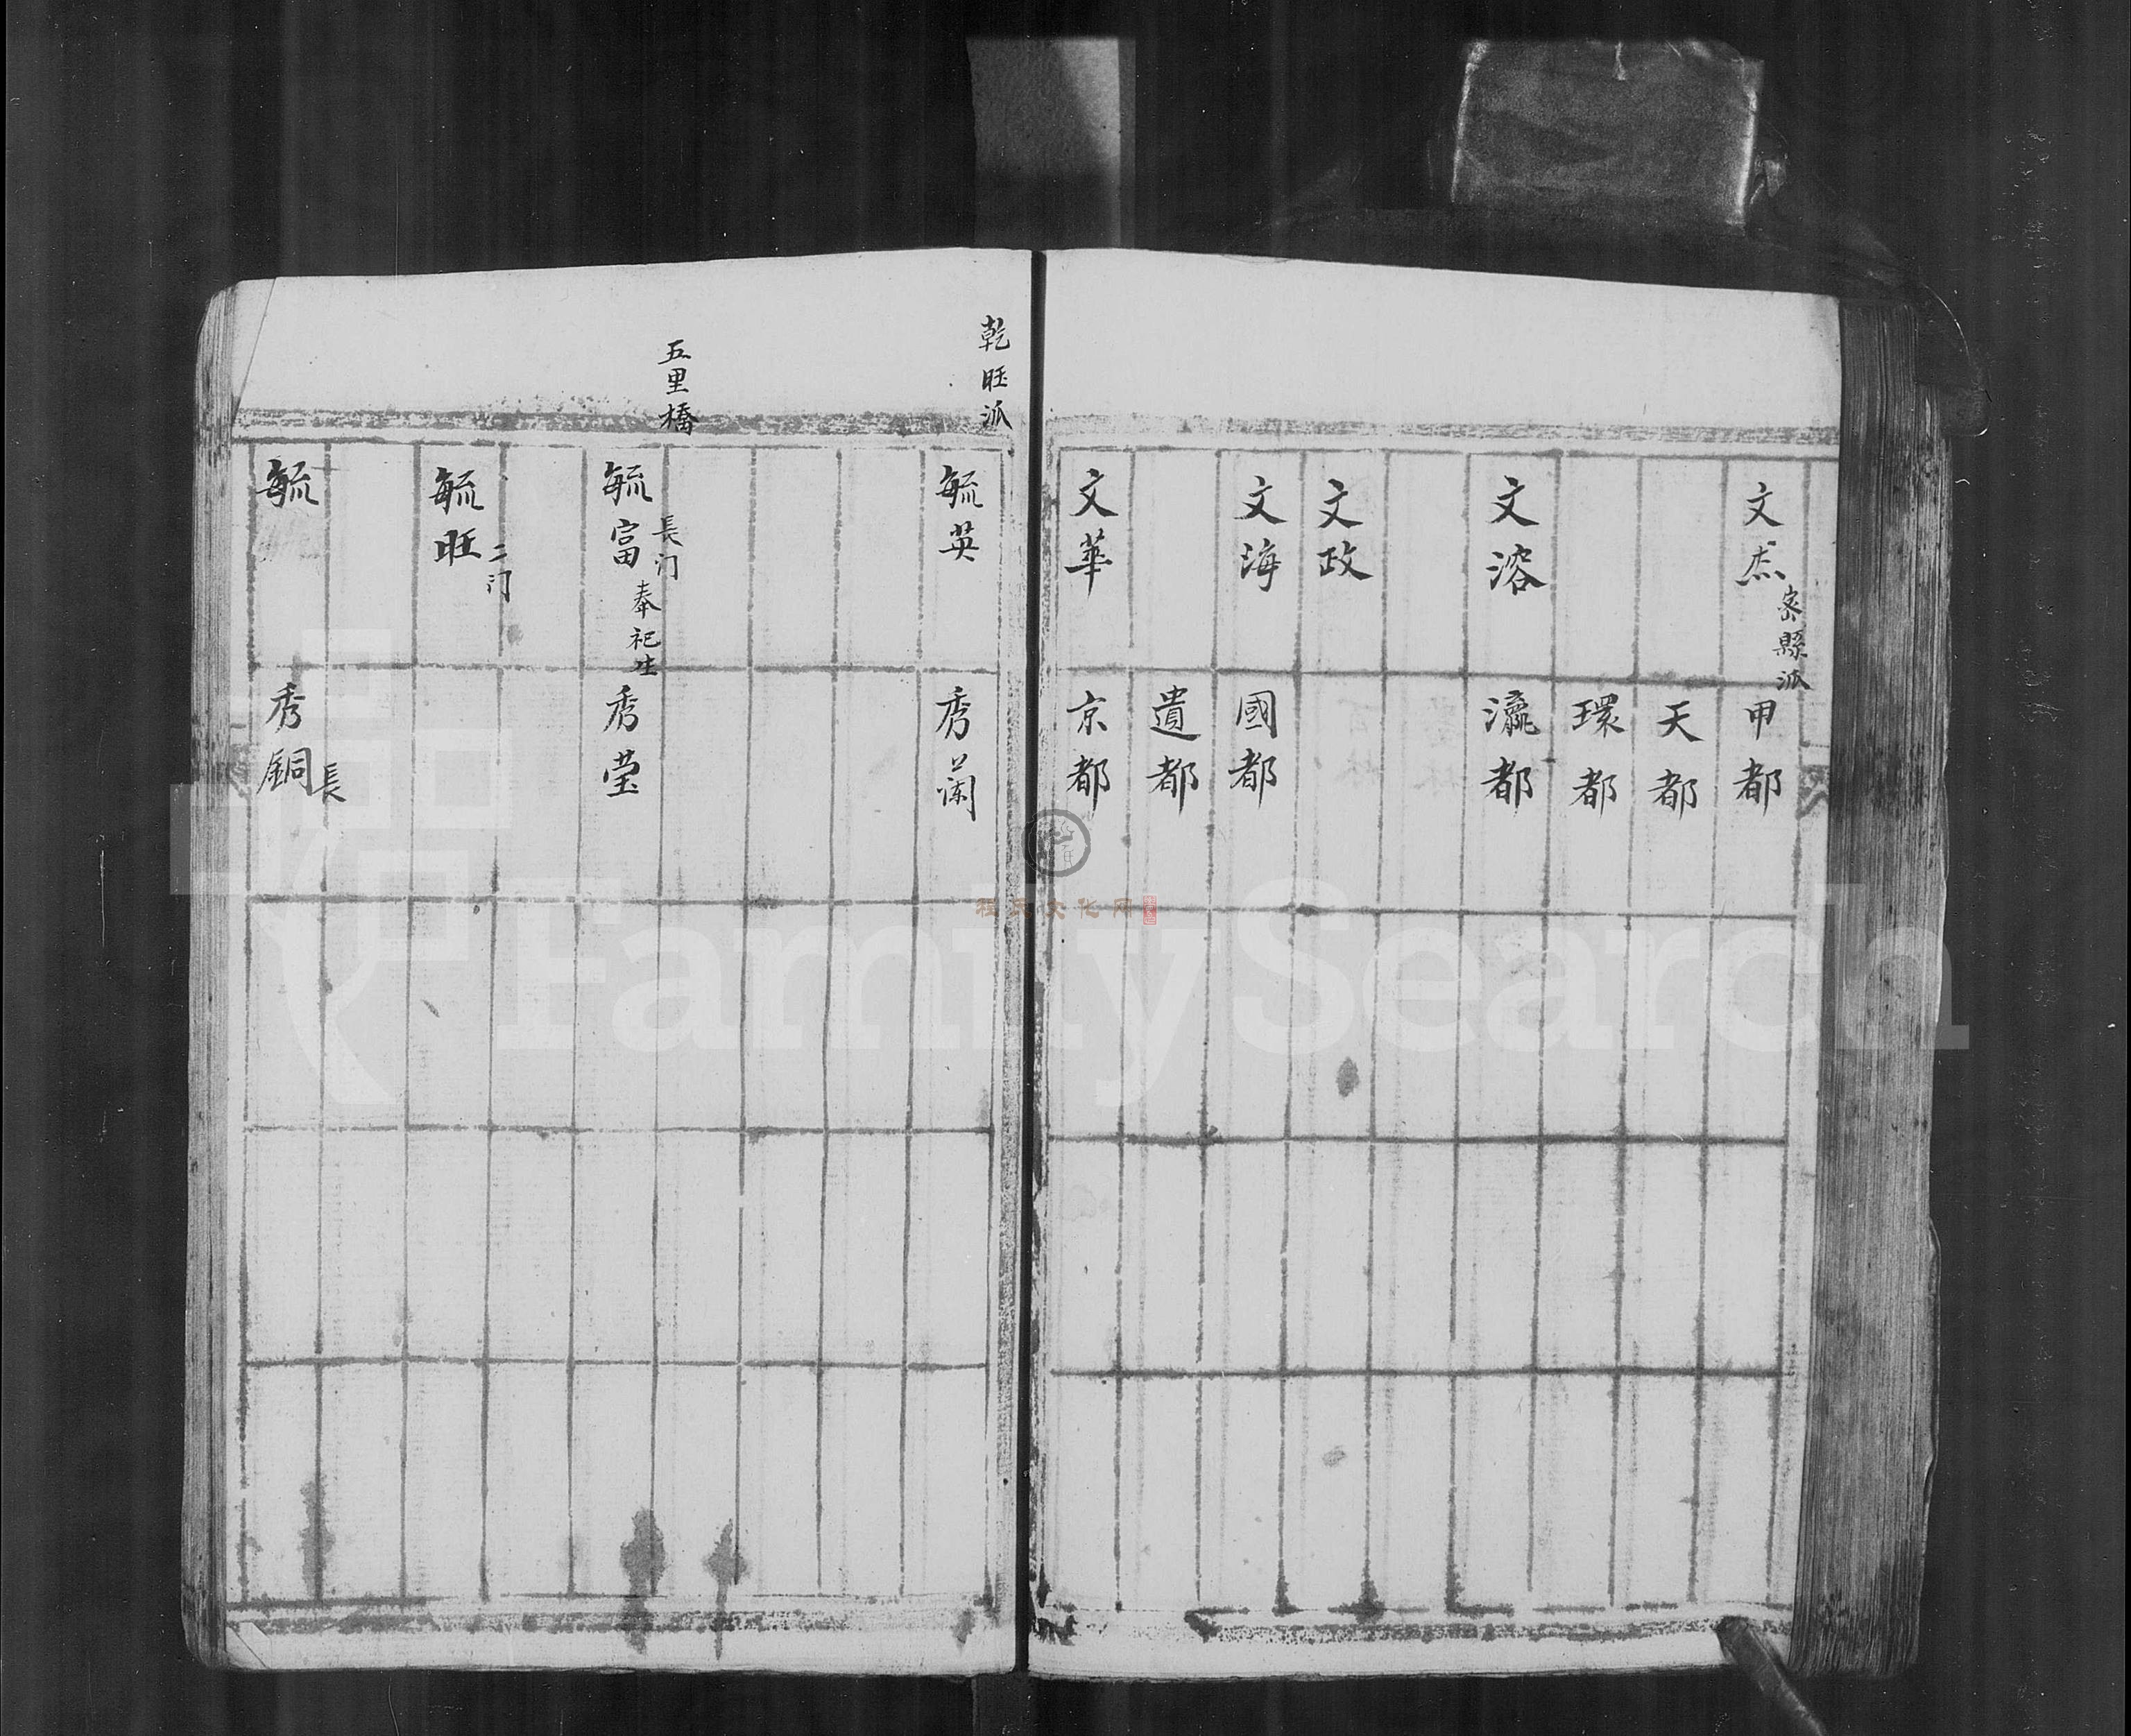 文杰
密縣派
甲都
天都
環都
文溶
瀛都
文政
文海
國都
遺都
文華
京都
乾旺派
毓英
秀蘭
五里橋
毓富
長门
奉祀生
秀莹
毓旺
二门
毓
秀銅
長
程氏文化网
FamilySearch